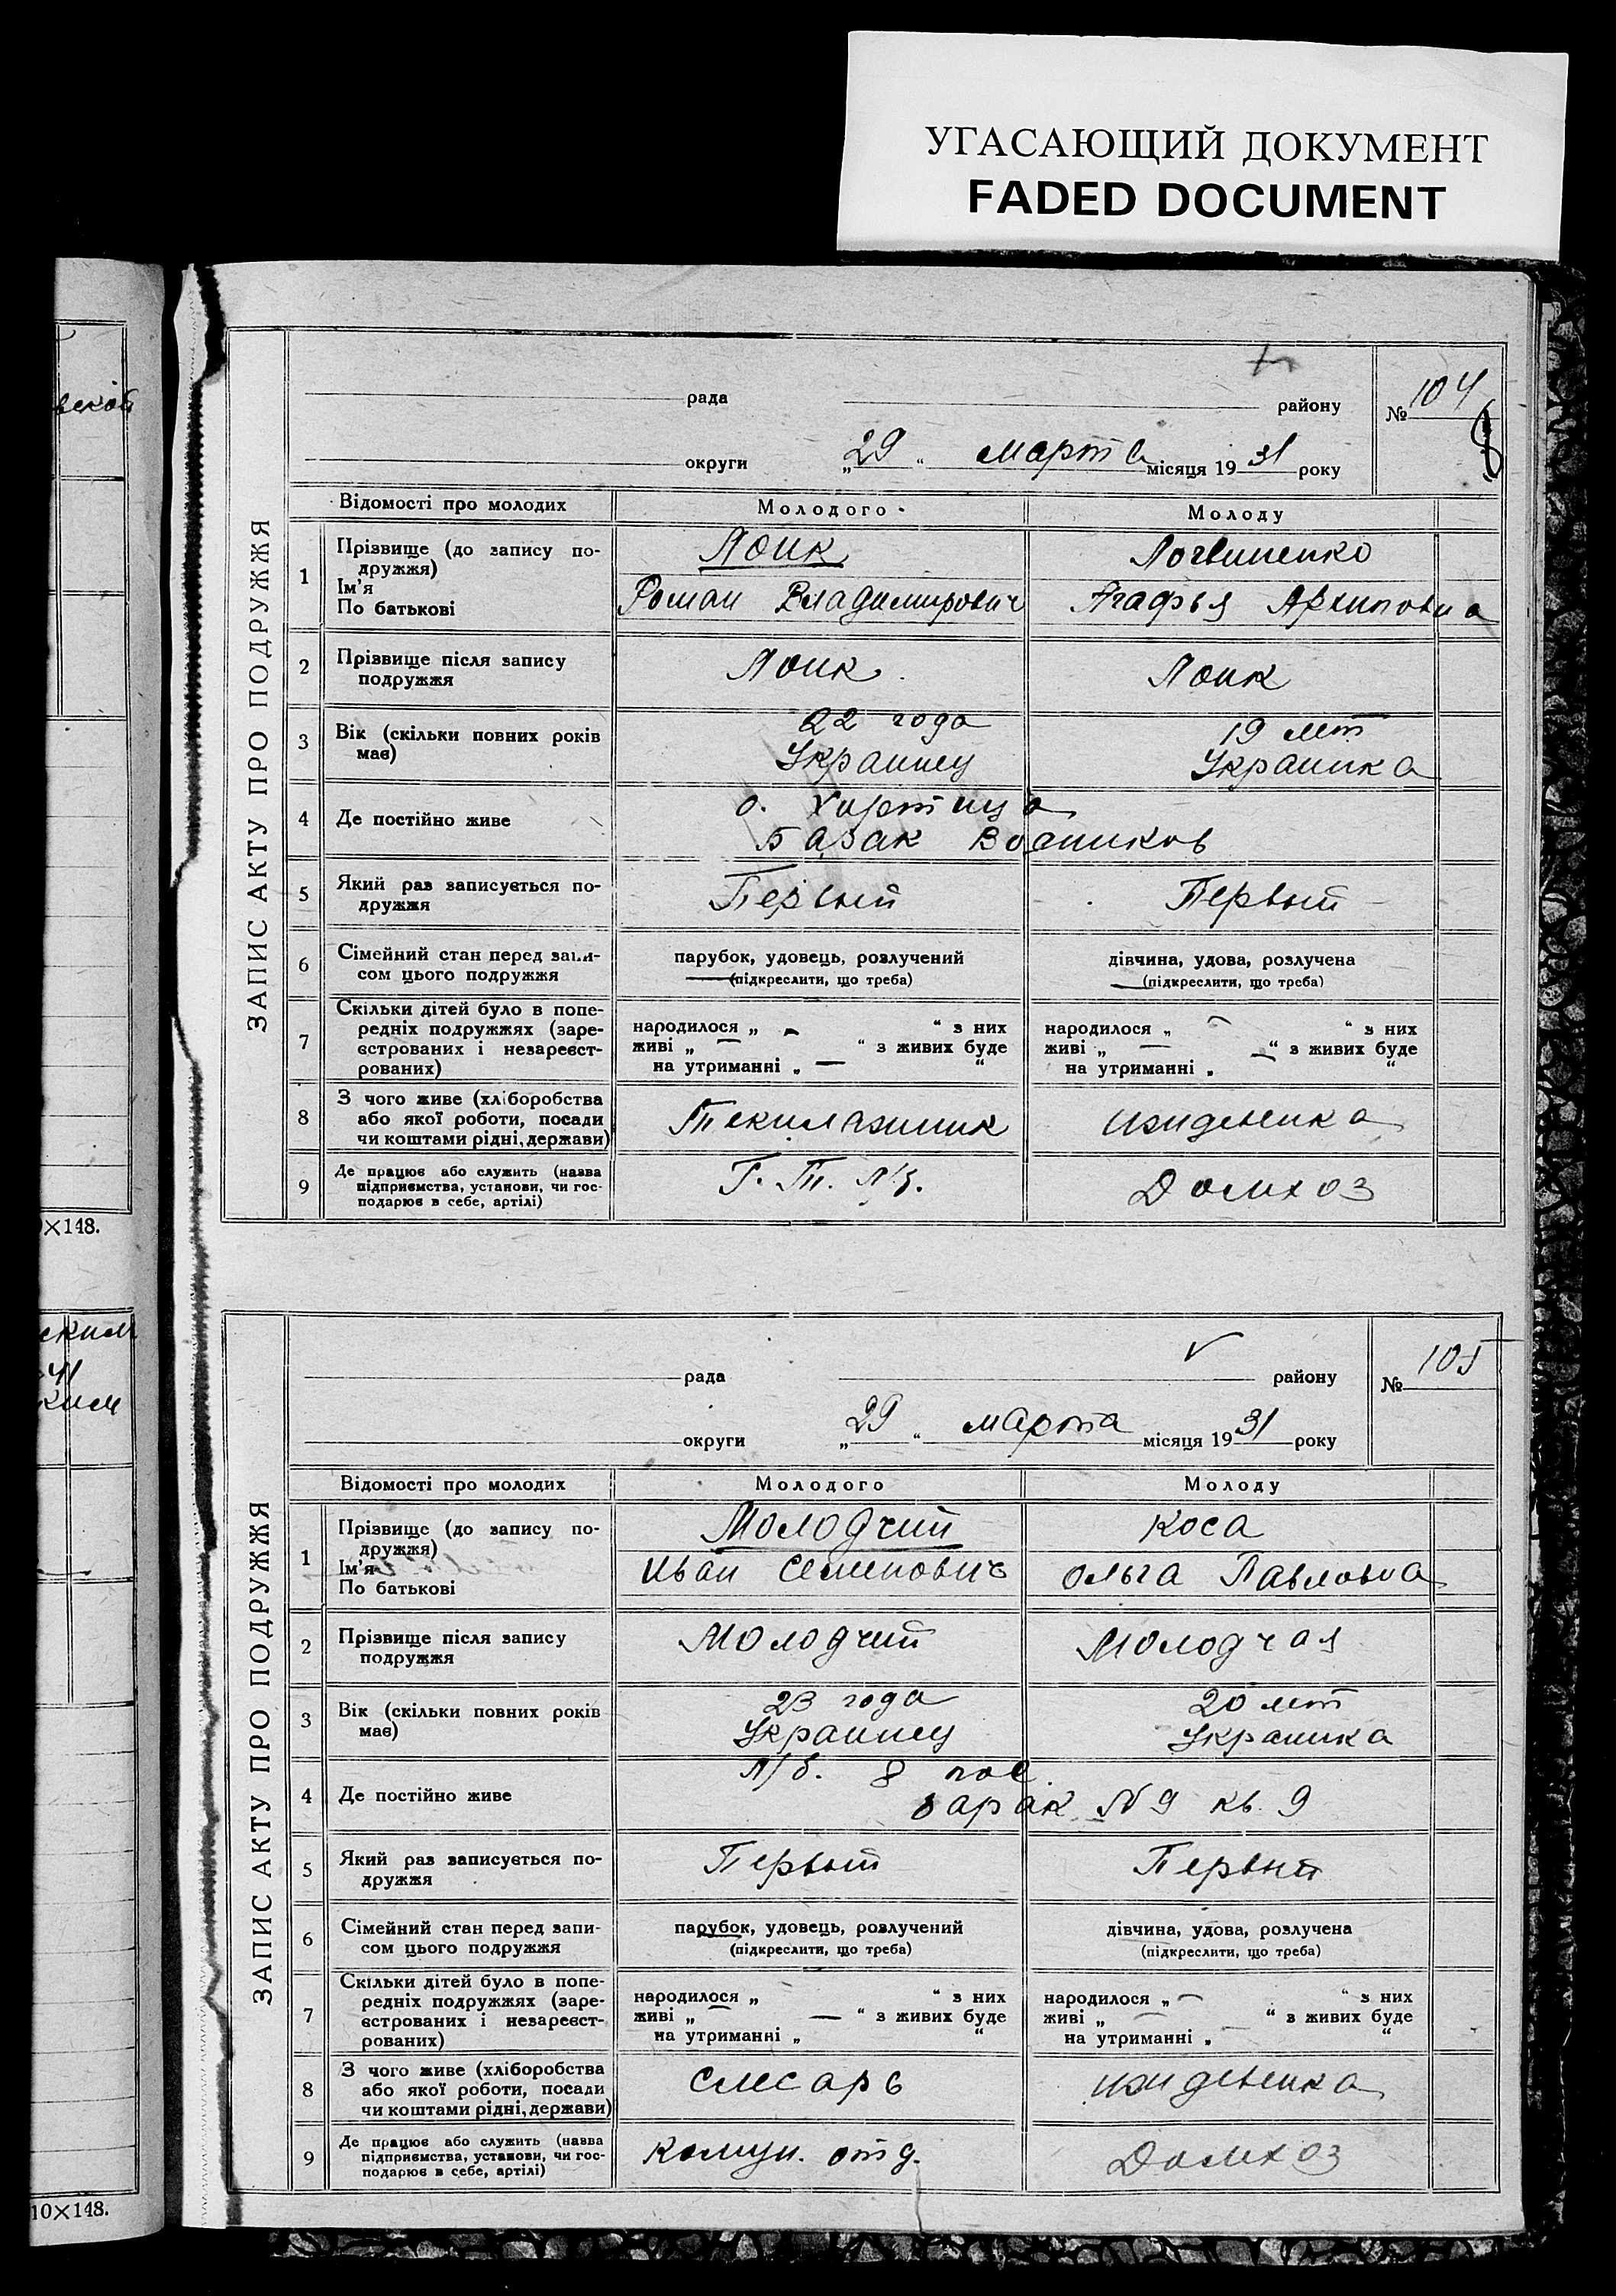 УГАСАЮЩИЙ ДОКУМЕНТ
FADED DOCUMENT
вской
ЗАПИС АКТУ ПРО ПОДРУЖЖЯ
рада району № 104
округи „29“ марта місяця 1931 року
Відомості про молодих Молодого Молоду
1 Прізвище (до запису по-
дружжя)
Ім'я
По батькові
Лоик Логвиненко
Роман Владимирович Агафья Архиповна
2 Прізвище після запису
подружжя
Лоик Лоик
3 Вік (скільки повних років
має)
22 года 19 лет
Украинец Украинка
4 Де постійно живе
о. Хортица
Барак
5 Який раз записується по-
дружжя
Первый Первый
6 Сімейний стан перед запи-
сом цього подружжя
парубок, удовець, розлучений дівчина, удова, розлучена
(підкреслити, що треба) (підкреслити, що треба)
7 Скільки дітей було в попе-
редніх подружжях (заре-
єстрованих і незареєст-
рованих)
народилося „ — “ з них народилося „ — “ з них
живі „ — “ з живих буде живі „ — “ з живих буде
на утриманні „ — “ на утриманні „ “
8 З чого живе (хліборобства
або якої роботи, посади
чи коштами рідні, держави)
иждевенка
9 Де працює або служить (назва
підприємства, установи, чи гос-
подарює в себе, артілі)
Домхоз
×148.
ЗАПИС АКТУ ПРО ПОДРУЖЖЯ
рада району № 105
округи „29“ марта місяця 1931 року
Відомості про молодих Молодого Молоду
1 Прізвище (до запису по-
дружжя)
Ім'я
По батькові
Молодчий Коса
Иван Семенович Ольга Павловна
2 Прізвище після запису
подружжя
Молодчий Молодчая
3 Вік (скільки повних років
має)
23 года 20 лет
Украинец Украинка
4 Де постійно живе
л/б. 8 пос.
барак N 9 кв. 9
5 Який раз записується по-
дружжя
Первый Первый
6 Сімейний стан перед запи-
сом цього подружжя
парубок, удовець, розлучений дівчина, удова, розлучена
(підкреслити, що треба) (підкреслити, що треба)
7 Скільки дітей було в попе-
редніх подружжях (заре-
єстрованих і незареєст-
рованих)
народилося „ “ з них народилося „ — “ з них
живі „ — “ з живих буде живі „ — “ з живих буде
на утриманні „ “ на утриманні „ “
8 З чого живе (хліборобства
або якої роботи, посади
чи коштами рідні, держави)
слесарь иждевенка
9 Де працює або служить (назва
підприємства, установи, чи гос-
подарює в себе, артілі)
Комун. отд. Домхоз
10×148.